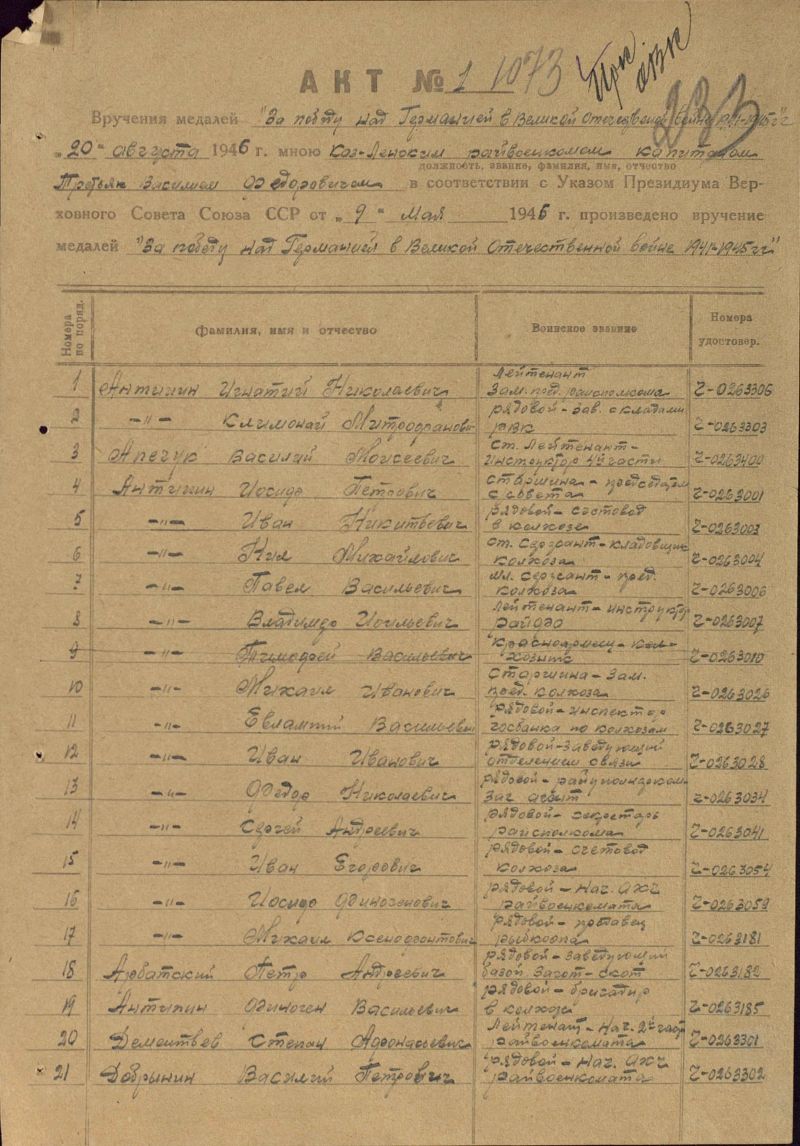 АКТ № 1 1073
233
Вручения медалей "За победу над Германией в Великой Отечественной войне 1941-1945гг"
"20" августа 1946 г. мною Каз-Ленским райвоенкомом капитаном
должность, звание, фамилия, имя, отчество
Третьяк Василием Федоровичем в соответствии с Указом Президиума Вер-
ховного Совета Союза ССР от "9" мая 1945 г. произведено вручение
медалей "За победу над Германией в Великой Отечественной войне 1941-1945гг"
Номера по поряд. Фамилия, имя и отчество Воинское звание Номера удостовер.
1 Антипин Игнатий Николаевич Лейтенант Зам. пред. райисполкома Г-0263306
2 -"- Климонай Митрофанови рядовой - Зав. складами РВК Г-0263303
3 Апечук Василий Моисеевич Ст. Лейтенант - Инструктор 4й части Г-0263400
4 Антипин Иосиф Петрович старшина - председат с совета Г-0263001
5 -"- Иван Никитьевич рядовой - счетовод в колхозе Г-0263003
6 -"- Нил Михайлович ст. Сержант - кладовщик колхоза Г-0263004
7 -"- Павел Васильевич мл. сержант - пред. колхоза Г-0263006
8 -"- Владимир Иосильевич Лейтенант - инструктор Райфо Г-0263007
9 -"- Тимофей Васильевич Красноармец - кол-хозник Г-0263010
10 -"- Михаил Иванович Старшина - Зам. пред. колхоза Г-0263026
11 -"- Евлампий Васильевич рядовой - инспектор госбанка по колхозам Г-0263027
12 -"- Иван Иванович рядовой - Заведующий отделением связи Г-0263028
13 -"- Федор Николаевич рядовой - Заг. агент Г-0263034
14 -"- Сергей Андреевич рядовой - секретарь райсполкома Г-0263041
15 -"- Иван Егорович рядовой - счетовод колхоза Г-0263054
16 -"- Иосиф Финогенович рядовой - Нач. АХЧ райвоенкомата Г-0263059
17 -"- Михаил Ксенофонтович рядовой - продавец рыбкоопа Г-0263181
18 Арбатский Петр Андреевич рядовой - заведующий базой Загот-скот Г-0263182
19 Антипин Финоген Васильевич рядовой - бригадир в колхозе Г-0263185
20 Дементьев Степан Афонасьевич Лейтенант - Нач. 2й части райвоенкомата Г-0263301
21 Добрынин Василий Петрович рядовой - Нач. АХЧ райвоенкомата Г-0263302